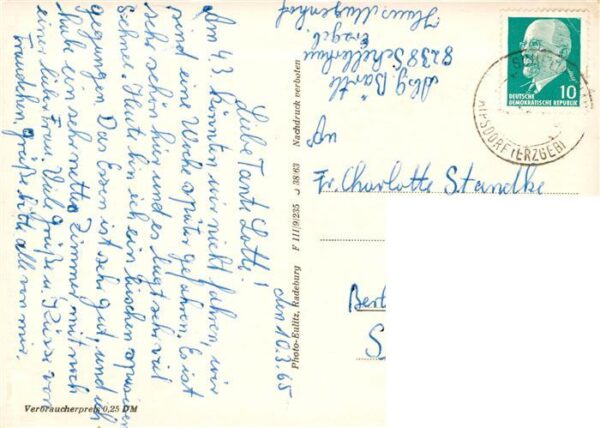 den 10.3.65
Liebe Tante Lotte!
Am 4.3. konnten wir nicht fahren, wir
sind eine Woche später gefahren. Es ist
sehr schön hier und es liegt sehr viel
Schnee. Heute bin ich ein bischen spazieren
gegangen. Das Essen ist sehr gut, und ich
habe ein sehr nettes Zimmer mit noch
einer lieben Frau. Viele Grüße u. Küsse von
Traudchen, grüße bitte alle von mir.
Verbraucherpreis 0,25 DM
Photo-Eulitz, Radeburg F III/9/235 J 38/63 Nachdruck verboten
Abs. Barth
8238 Schellerhau
Erzgeb.
DEUTSCHE
DEMOKRATISCHE REPUBLIK
10
KIPSDORF (ERZGEB)
Fr. Charlotte Standke
Berl
S